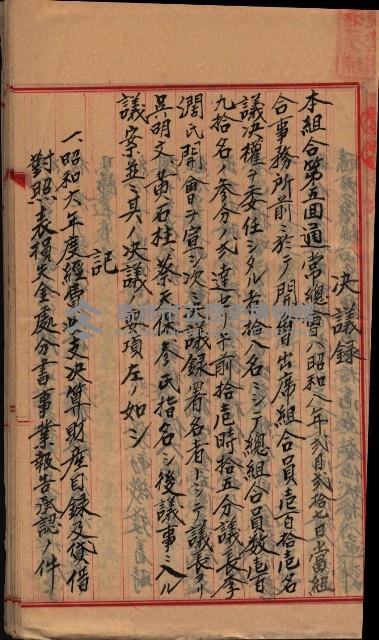 決議錄
本組合第五回通常總會ハ昭和八年弐月弐拾七日當組
合事務所前ニ於テ開會出席組合員壱百拾壱名
議決權ヲ委任シタル者拾八名ニシテ總組合員數壱百
九拾名ノ参分ノ弐ニ達セ午前拾壱時拾五分議長李
潤氏開會ヲ宣シ次ニ決議録署名者トシテ議長ヨリ
吳明文、黃石柱、蔡天保参氏指名シ後議事ニ入ル
議案並ニ其ノ決議ノ要項左ノ如シ
記
一、昭和七年度經費收支決算財産目録及貸借
對照表損失金處分書事業報告承認ノ件